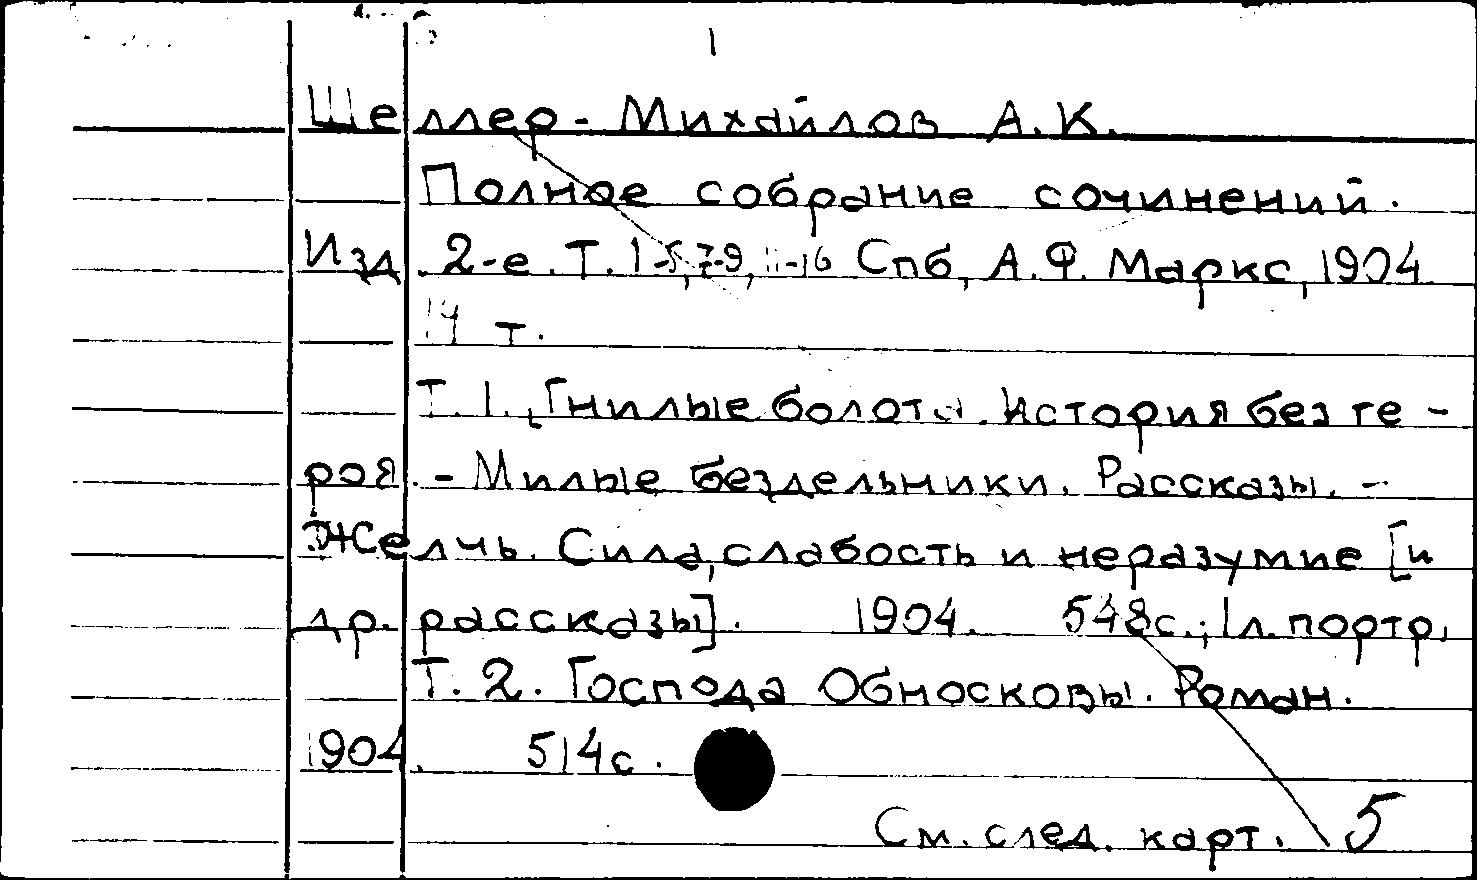 1
Шеллер-Михайлов А.К.
Полное собрание сочинений.
Изд. 2-е. Т. 1-5, 7-9, 11-16 Спб, А.Ф. Маркс, 1904.
14 т.
Т. 1. Гнилые болота. История без ге-
роя. - Милые бездельники. Рассказы. -
Желчь. Сила, слабость и неразумие [и
др. рассказы]. 1904. 548с.; 1л. портр.
Т. 2. Господа Обносковы. Роман.
1904. 514с.
См. след. карт. 5